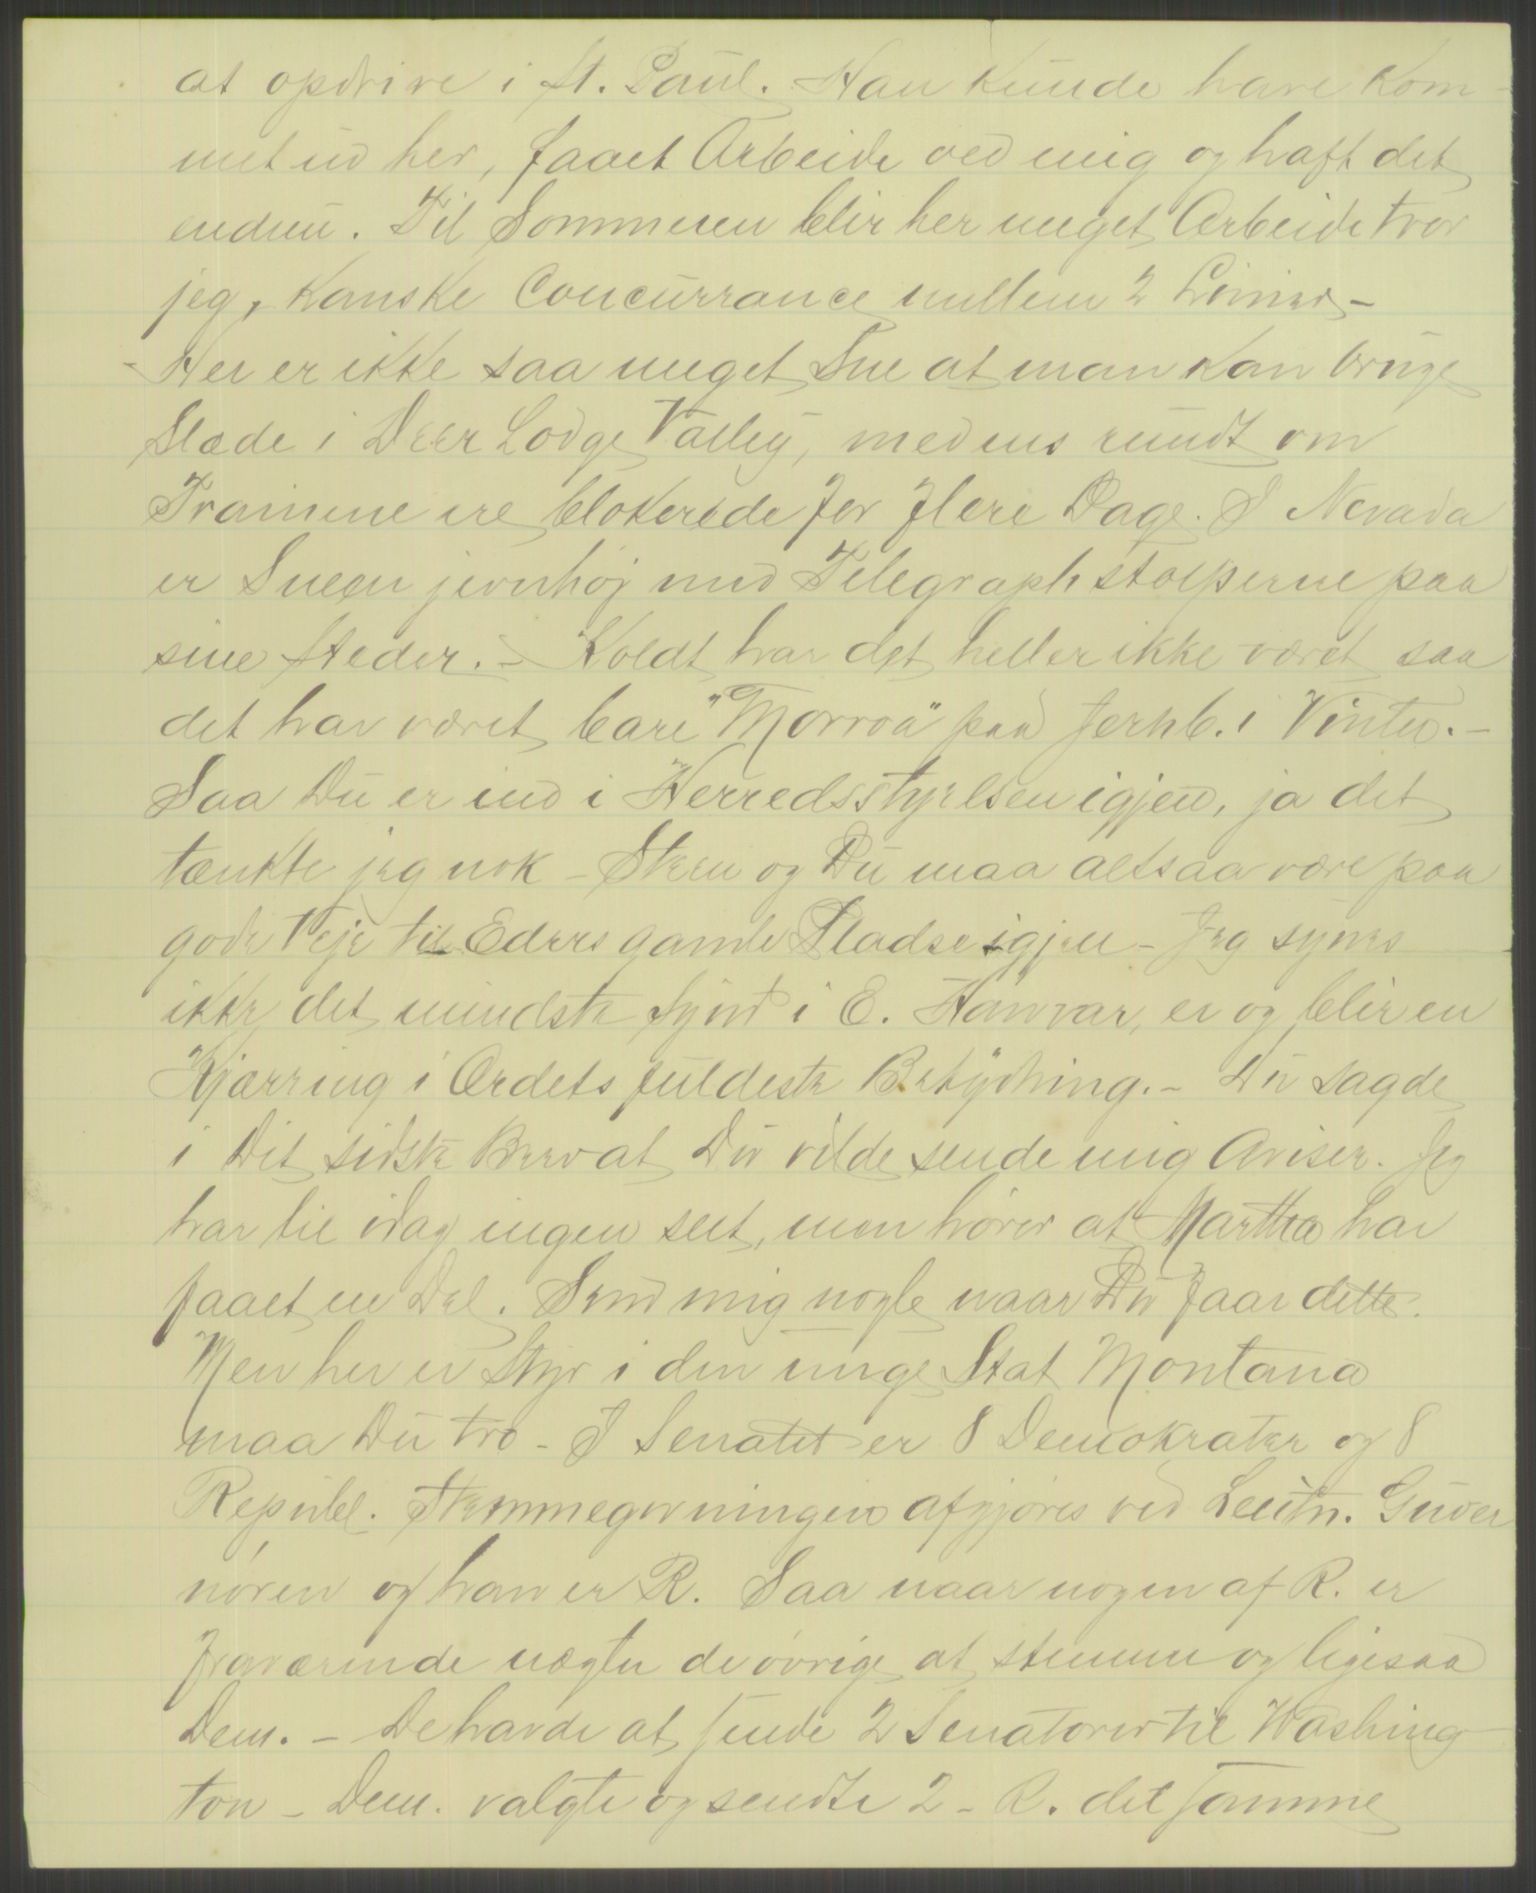 at opdrive i St. Paul. Han kunde have kom-
met ud her, faaet Arbeide ved mig og haft det
endnu. Til Sommeren blir her meget Arbeide tror
jeg, kanske Concurrance mellem 2 Linier -
- Her er ikke saa meget Sne at man kan bruge
Slæde i Deer Lodge Valley, medens rundt om
Trainene ere blokerede for flere Dage. I Nevada
er Sneen jevnhøj med Telegraphstolperne paa
sine Steder. - Koldt har det heller ikke været saa
det har været bare "Morroa" paa Jernb. i Vinter. -
Saa Du er ind i Herredsstyrelsen igjen, ja det
tænkte jeg nok - Steen og Du maa altsaa være paa
gode Veje til Eders gamle Pladse igjen - Jeg synes
ikke det mindste Synd i E. Han var, er og blir en
"Kjærring i Ordets fuldeste Betydning. - Du sagde
i Dit sidste Brev at Du vilde sende mig Aviser. Jeg
har til idag ingen seet, men hører at Martha har
faaet en Del. Send mig nogle naar Du faar dette.
Men her er Styr i den unge Stat Montana
maa Du tro - I Senatet er 8 Demokrater og 8
Republ. Stemmegivningen afgjøres ved Leutn. Guver
nøren og han er R. Saa naar nogen af R. er
fraværende nægter de øvrige at stemme og ligesaa
Dem. - De havde at sende 2 Senatorer til Washing
ton - Dem. valgte og sendte 2 - R. det samme